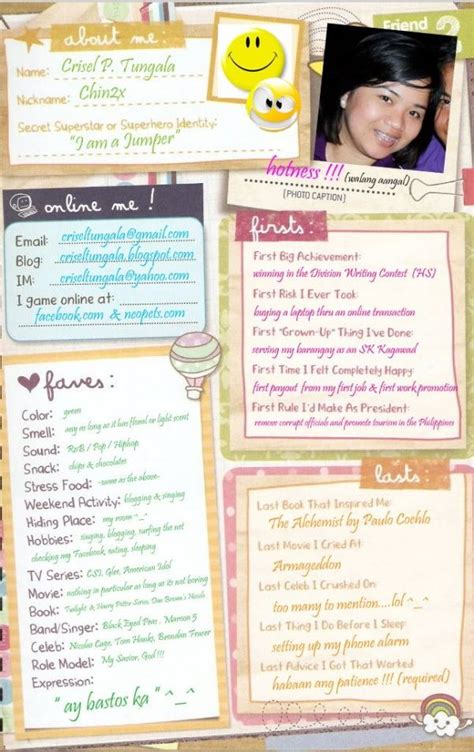 about me:
Name: Crisel P. Tungala
Nickname: Chin2x
Secret Superstar or Superhero Identity:
"I am a Jumper"
Friend
hotness !!! (walang aangal)
[PHOTO CAPTION]
online me!
Email: criseltungala@gmail.com
Blog: criseltungala.blogspot.com
IM: criseltungala@yahoo.com
I game online at:
facebook.com & neopets.com
firsts:
First Big Achievement:
winning in the Division Writing Contest (HS)
First Risk I Ever Took:
buying a laptop thru an online transaction
First "Grown-Up" Thing I've Done:
serving my barangay as an SK Kagawad
First Time I Felt Completely Happy:
first payout from my first job & first work promotion
First Rule I'd Make As President:
remove corrupt officials and promote tourism in the Philippines
faves:
Color: green
Smell: any as long as it has floral or light scent
Sound: RnB / Pop / Hiphop
Snack: chips & chocolates
Stress Food: -same as the above-
Weekend Activity: blogging & singing
Hiding Place: my room ^_^
Hobbies: singing, blogging, surfing the net
checking my Facebook, eating, sleeping
TV Series: CSI, Glee, American Idol
Movie: nothing in particular as long as its not boring
Book: Twilight & Harry Potter Series, Dan Brown's Novels
Band/Singer: Black Eyed Peas, Maroon 5
Celeb: Nicolas Cage, Tom Hanks, Brendan Fraser
Role Model: My Savior, God !!!
Expression:
" ay bastos ka " ^_^
lasts:
Last Book That Inspired Me:
The Alchemist by Paulo Coehlo
Last Movie I Cried At:
Armageddon
Last Celeb I Crushed On:
too many to mention....lol ^_^
Last Thing I Do Before I Sleep:
setting up my phone alarm
Last Advice I Got That Worked:
habaan ang patience !!! (required)